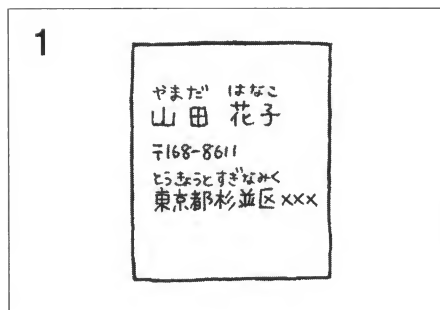 1
やまだ はなこ
山田 花子
〒168-8611
とうきょうとすぎなみく
東京都杉並区×××